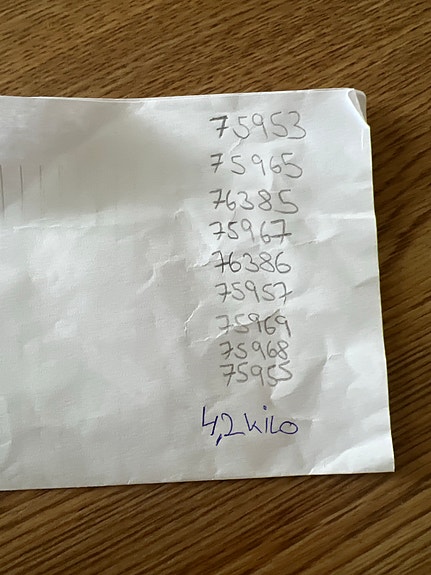 75953
75965
76385
75967
76386
75957
75969
75968
75955
4,2 kilo